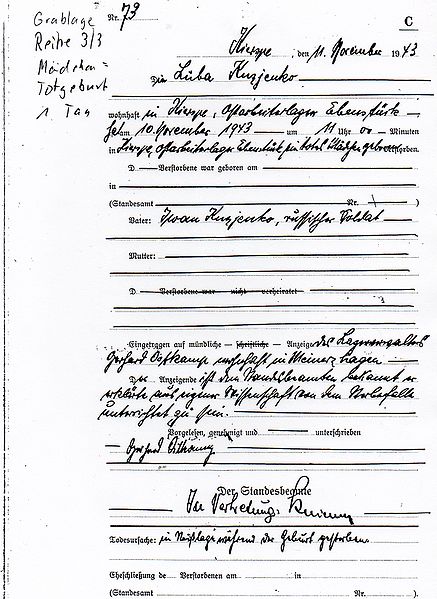 Grablage
Reihe 3/3
Mädchen =
Totgeburt
1 Tag
Nr. 73
C
Kierspe, den 11. November 1943
Die Luba Knyzenko
wohnhaft in Kierspe, Ostarbeiterlager Ebenstück
hat am 10. November 1943 um 11 Uhr 00 Minuten
in Kierspe, Ostarbeiterlager Ebenstück, ein totes Mädchen geboren
D Verstorbene war geboren am
in
(Standesamt Nr. )
Vater: Iwan Knyzenko, russischer Soldat
Mutter:
D Verstorbene war nicht verheiratet
Eingetragen auf mündliche schriftliche Anzeige des Lagerverwalters
Gerhard wohnhaft in Meinerzhagen
D Anzeigende ist dem Standesbeamten bekannt er
erklärte aus eigener Wissenschaft von dem Sterbefalle
unterrichtet zu sein.
Vorgelesen, genehmigt und unterschrieben
Gerhard
Der Standesbeamte
In Vertretung:
Todesursache: in Steißlage während der Geburt gestorben.
Eheschließung de Verstorbenen am in
(Standesamt Nr. )